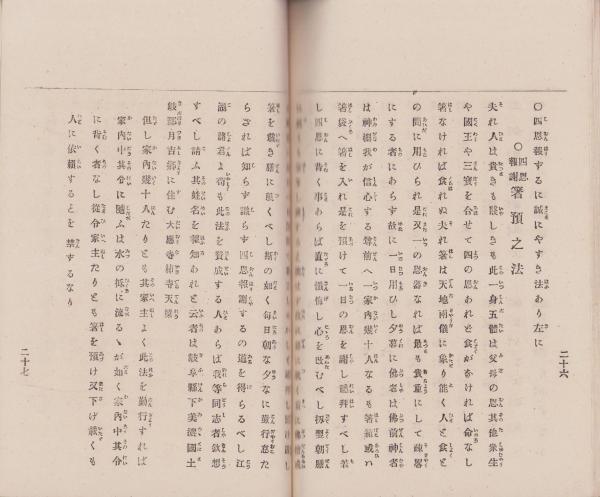 〇四恩報ずるに誠にやすき法あり左に
〇四恩報謝箸預之法
夫れ人は貴きも賤しきも此一身五體は父母の恩其他衆生
や國王や三寳を合せて四の恩あれど食が欠ければ命なし
箸なければ食れぬ夫れ箸は天地兩儀に象り能く人と食と
の間に用ひられ是又一の恩器なれば最も貴重にして疎畧
にする者にあらず故に一日用ひし夕暮に佛者は佛前神者
は神棚我が信心する尊前へ一家內幾十人なるも箸箱或ハ
箸袋へ箸を入れ是を預けて一日の恩を謝し禮拜すべし若
し四恩に背く事あらば直に懺悔し心を改むべし扨翌朝膳
箸を戴き膳に就くべし斯の如く每日朝な夕なに勤行怠た
らざれば知らず識らず四恩報謝するの道を得らるべし江
湖の諸君よ苟も此法を賛成する人あらば我等同志者欽想
すべし請ふ其姓名を報知あれと云者は岐阜縣下美濃國土
岐郡月吉鄕に住む大應寺柿寺天嶺
但し家內幾十人たりとも其家主よく此法を勤行すれば
家內中其令に隨ふは水の低に流るゝが如く家內中其令
に背く者なし從令家主たりとも箸を預け又下げ戴くも
人に依賴することを禁ずるなり
二十六
二十七